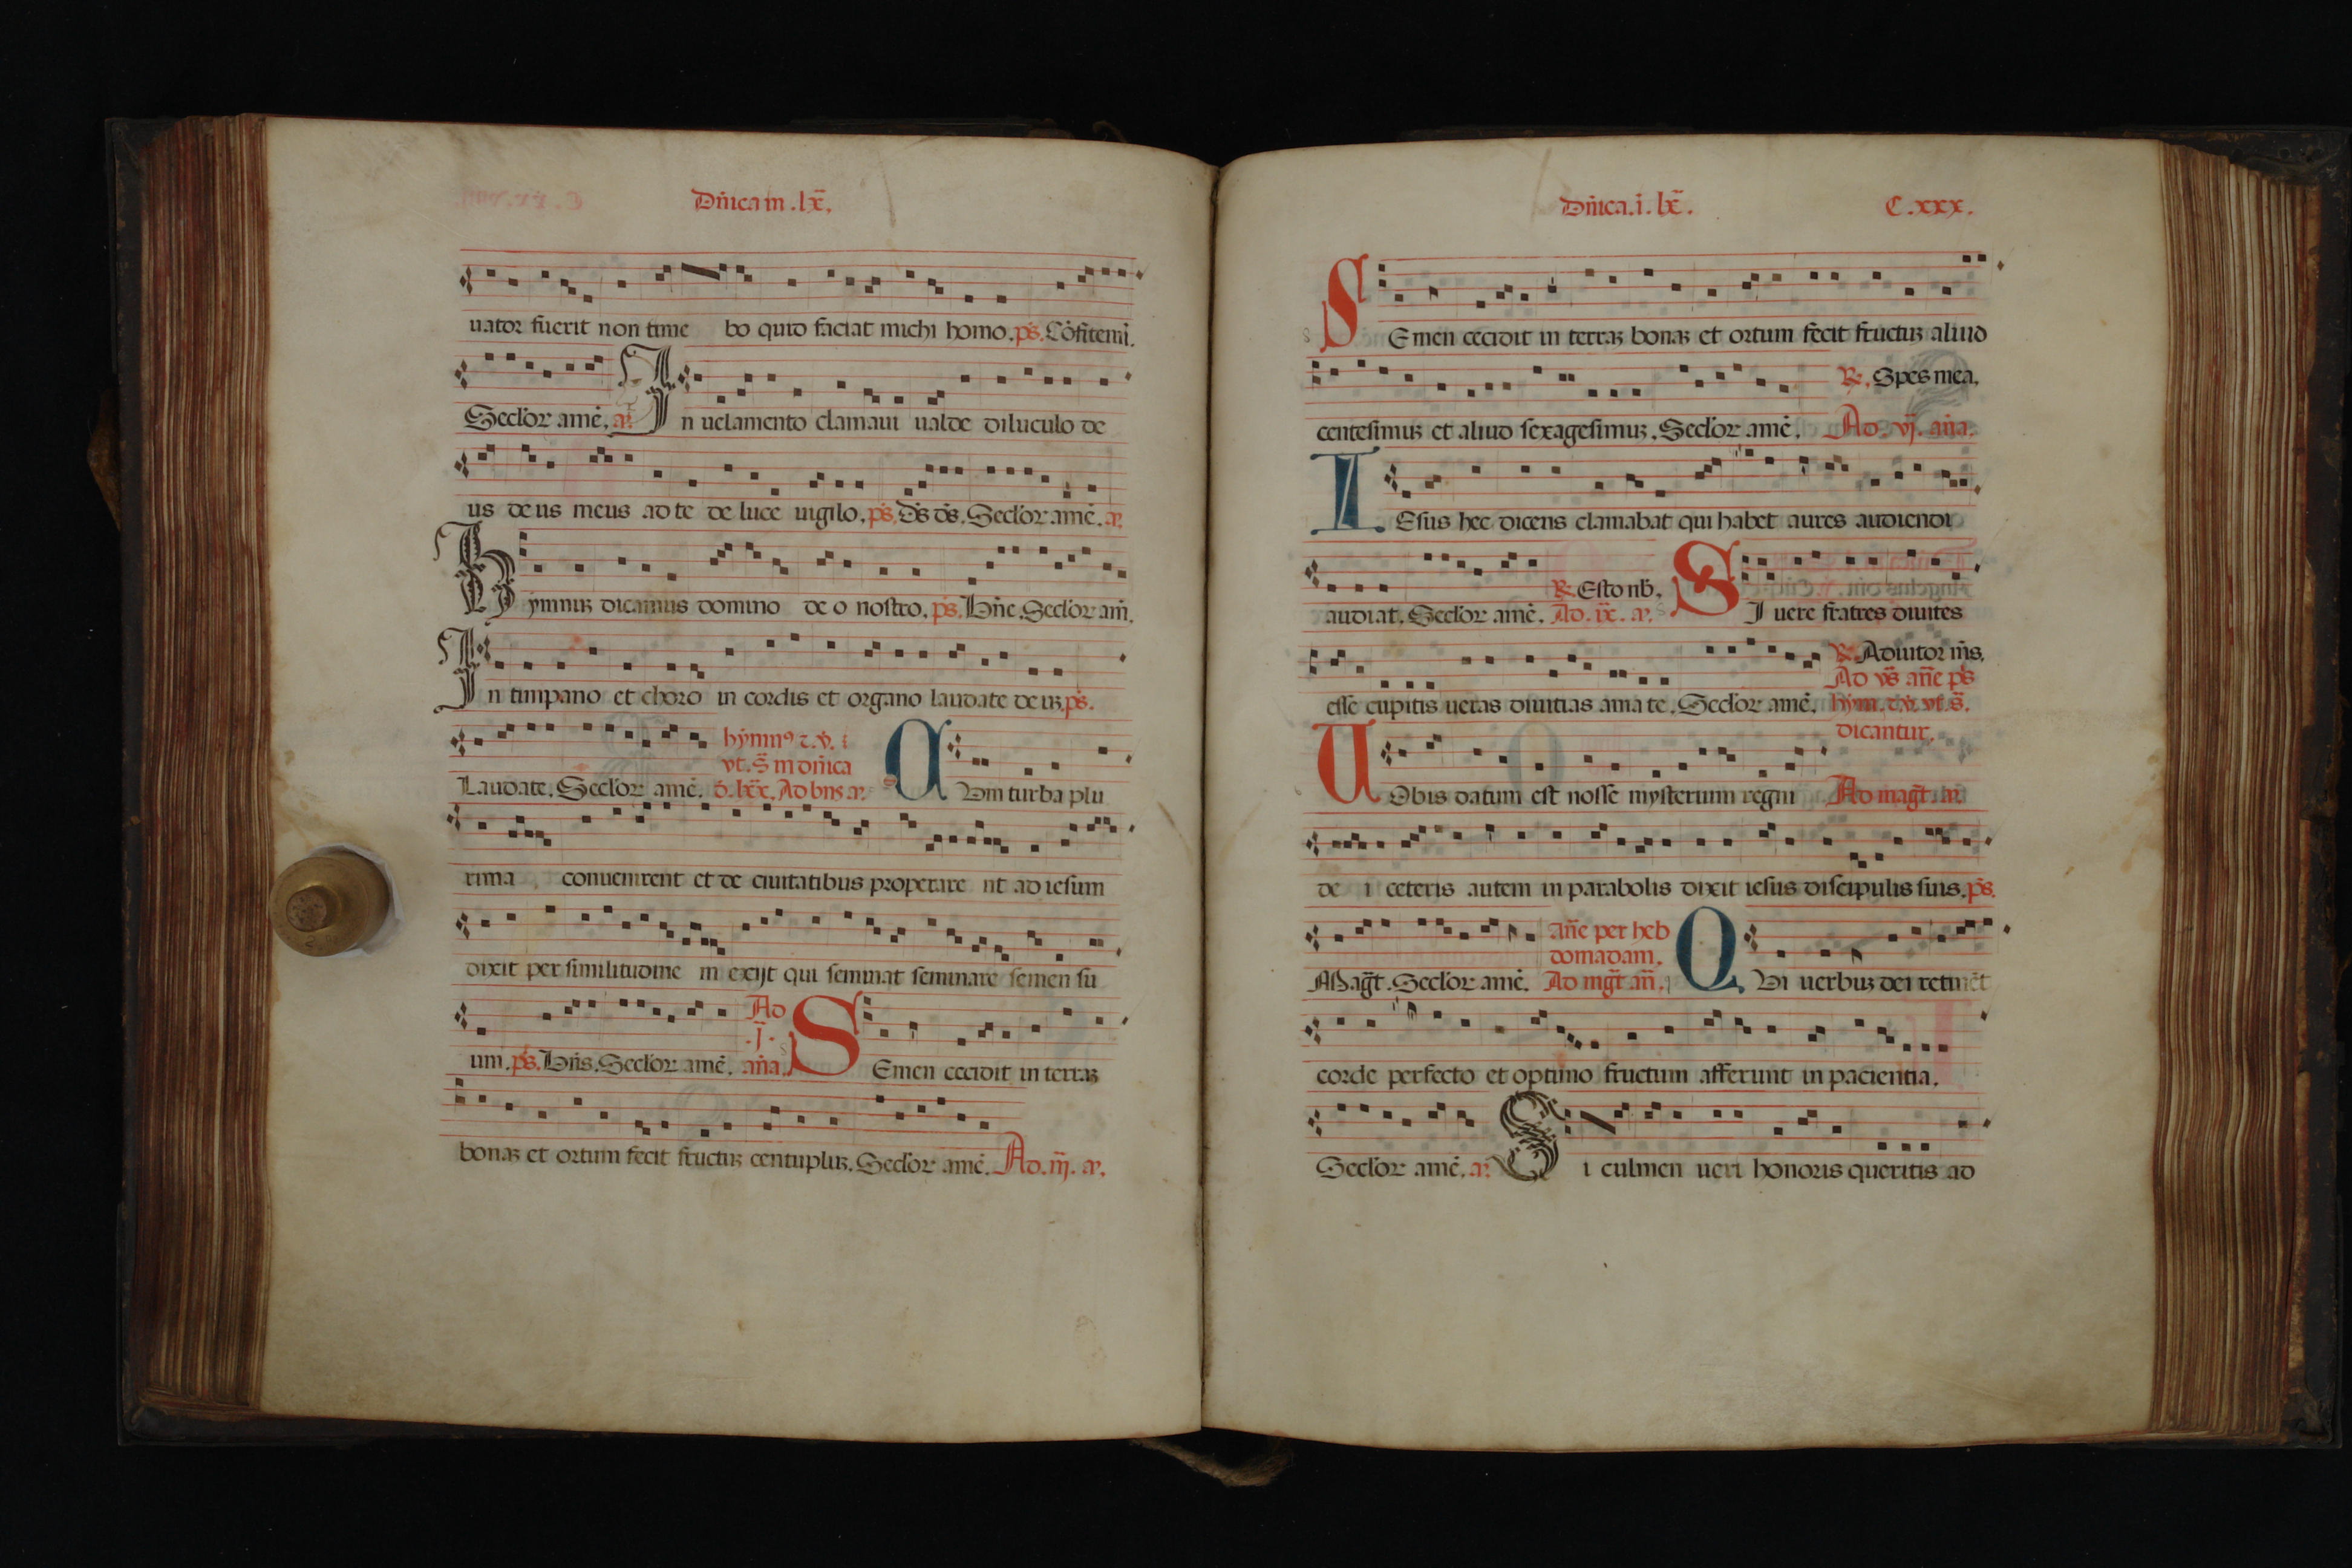 Dn̄ica in .lx̄.
uator fuerit non time bo quid faciat michi homo. ps̄. Cōfitemi.
Secl'or amē. a'. In uelamento clamaui ualde diluculo de
us deus meus ad te de luce uigilo. ps̄. Ds̄ ds̄. Secl'or amē. a'.
Hymnuꝫ dicamus domino de o nostro. ps̄. Bn̄e. Secl'or am̄.
In timpano et choro in cordis et organo laudate deuꝫ. ps̄.
hymnꝰ ⁊. v̄. i
vt. s̄ in dn̄ica
Laudate. Secl'or amē. d̄. lxx̄. Ad bn̄s a'. Cum turba plu
rima conuenirent et de ciuitatibus properare nt ad iesum
dixit per similitudine m exijt qui seminat seminare semen su
Ad
.j̄.
um. ps̄. Bn̄s. Secl'or amē. an̄a. SEmen cecidit in terraꝫ
bonaꝫ et ortum fecit fructuꝫ centupluꝫ. Secl'or amē. Ad .iij. a'.
Dn̄ica .i. lx̄.
C.xxx.
SEmen cecidit in terraꝫ bonaꝫ et ortum fecit fructuꝫ aliud
℟. Spes mea.
centesimuꝫ et aliud sexagesimuꝫ. Secl'or amē. Ad .vj. an̄a.
IEsus hec dicens clamabat qui habet aures audiendi
℟. Esto nb̄.
audiat. Secl'or amē. Ad .ix. a'. SI uere fratres diuites
℟. Adiutor m̄s.
Ad vs̄ an̄e ps̄
esse cupitis ueras diuitias ama te. Secl'or amē. hym. ⁊. v̄. vt. s̄.
dicantur.
UObis datum est nosse mysterium regni Ad magt̄. a'.
de i ceteris autem in parabolis dixit iesus discipulis suis. ps̄.
an̄e per heb
domadam.
Magt̄. Secl'or amē. Ad mgt̄ an̄. QUi uerbuꝫ dei retinēt
corde perfecto et optimo fructum afferunt in pacientia.
Secl'or amē. a'. Si culmen ueri honoris queritis ad